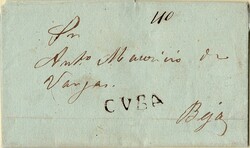 40
Snr
Anto Mauricio de
Vargas.
CVBA
Beja